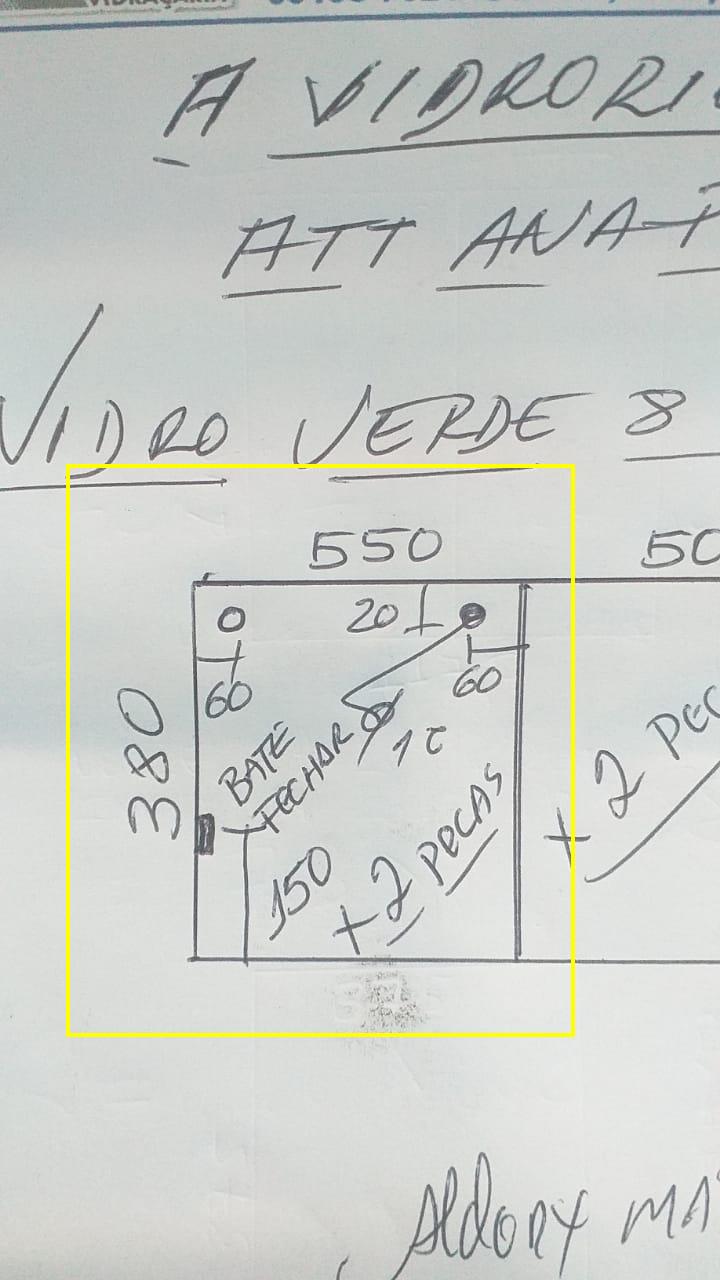 VIDRAÇARIA
A VIDRORI
ATT ANA
VIDRO VERDE 8
550
50
20
60
60
380
BATE
FECHAR
150
+ 2 PEÇAS
+ 2 PEÇ
Aldory MA